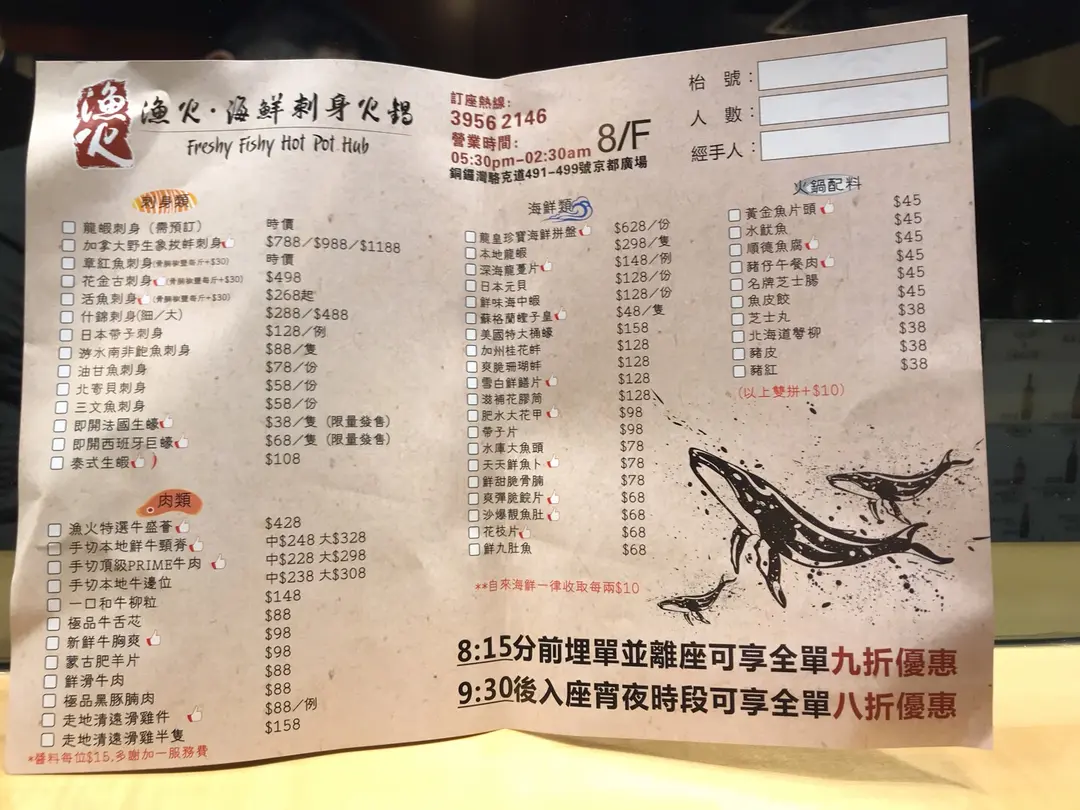 漁火
漁火·海鮮刺身火鍋
Freshy Fishy Hot Pot Hub
訂座熱線:
3956 2146
營業時間:
05:30pm-02:30am
8/F
銅鑼灣駱克道491-499號京都廣場
枱 號:
人 數:
經手人:
刺身類
龍蝦刺身(需預訂) 時價
加拿大野生象拔蚌刺身 $788/$988/$1188
章紅魚刺身(骨腩椒鹽每斤+$30) 時價
花金古刺身(骨腩椒鹽每斤+$30) $498
活魚刺身(骨腩椒鹽每斤+$30) $268起
什錦刺身(細/大) $288/$488
日本帶子刺身 $128/例
游水南非鮑魚刺身 $88/隻
油甘魚刺身 $78/份
北寄貝刺身 $58/份
三文魚刺身 $58/份
即開法國生蠔 $38/隻(限量發售)
即開西班牙巨蠔 $68/隻(限量發售)
泰式生蝦 $108
肉類
漁火特選牛盛薈 $428
手切本地鮮牛頸脊 中$248 大$328
手切頂級PRIME牛肉 中$228 大$298
手切本地牛邊位 中$238 大$308
一口和牛柳粒 $148
極品牛舌芯 $88
新鮮牛胸爽 $98
蒙古肥羊片 $98
鮮滑牛肉 $88
極品黑豚腩肉 $88
走地清遠滑雞件 $88/例
走地清遠滑雞半隻 $158
*醬料每位$15,多謝加一服務費
海鮮類
龍皇珍寶海鮮拼盤 $628/份
本地龍蝦 $298/隻
深海龍躉片 $148/例
日本元貝 $128/份
鮮味海中蝦 $128/份
蘇格蘭蟶子皇 $48/隻
美國特大桶蠔 $158
加州桂花蚌 $128
爽脆珊瑚蚌 $128
雪白鮮鱔片 $128
滋補花膠筒 $128
肥水大花甲 $98
帶子片 $98
水庫大魚頭 $78
天天鮮魚卜 $78
鮮甜脆骨腩 $78
爽彈脆鯇片 $68
沙爆靚魚肚 $68
花枝片 $68
鮮九肚魚 $68
**自來海鮮一律收取每兩$10
火鍋配料
黃金魚片頭 $45
水魷魚 $45
順德魚腐 $45
豬仔午餐肉 $45
名牌芝士腸 $45
魚皮餃 $45
芝士丸 $38
北海道蟹柳 $38
豬皮 $38
豬紅 $38
(以上雙拼+$10)
8:15分前埋單並離座可享全單九折優惠
9:30後入座宵夜時段可享全單八折優惠